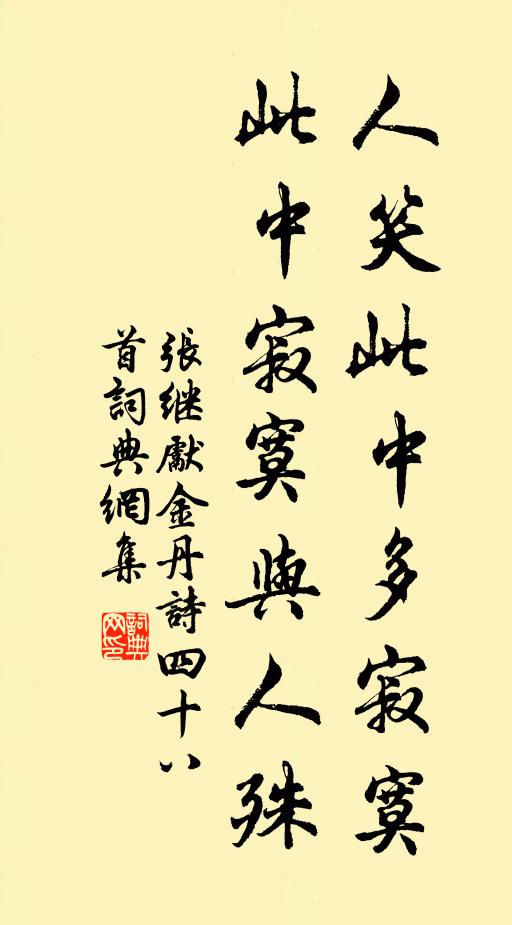 人笑此中多寂寞
此中寂寞與人殊
張继獻金丹詩四十八
首詞典網集
詞典
网印